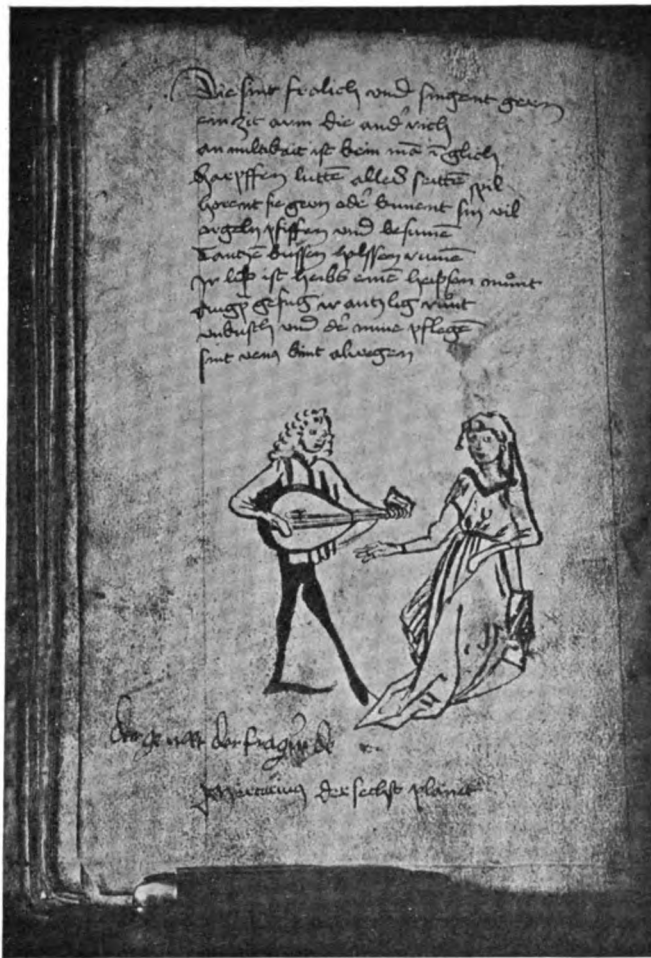 Die sint frolich vnd singent gern
ein zit arm die and' rich
an miltikait ist kein mā ī glich
harpffen luttē alles seittē spil
horent sie gern od' kunnent sin vil
orgeln pfiffen vnd besunē
Tantzē kussen helssen
Ir lip ist einē munt
ir antzlig runt
vnkusch vnd d' mine pflegē
sint kint alwegen
der
Mercurius der sechst planet